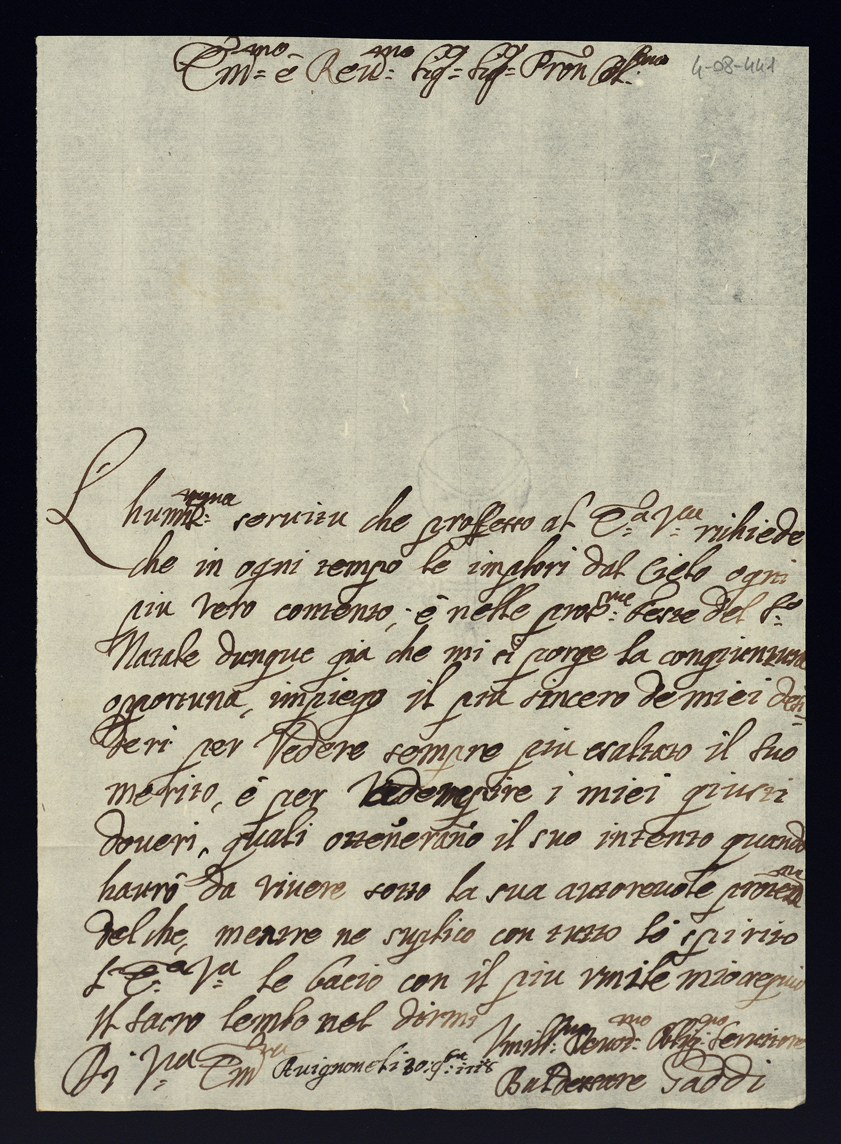 Em.mo è Reu.mo Sig.r Sig.r Pron Col.mo
4-08-441
L' humil.ma seruitu che professo al E.a V.ra richiede
che in ogni tempo le implori dal Cielo ogni
piu vero contento, è nelle pros.me feste del S.o
Natale dunque gia che mi si porge la congiuntura
oportuna, impiego il piu sincero de miei desi-
deri per Vedere sempre piu esaltato il suo
merito, è per ademspire i miei giusti
doueri, quali ottenerano il suo intento quando
hauro da viuere sotto la sua autoreuole protez.na
del che, mentre ne suplico con tutto lo spirito
l' E.a V.ra le bacio con il piu vmile mio ossequio
il sacro lembo nel dirmi
Di V.ra Em.za Auignone li 30 9bre 1718
Vmill.mo Deuot.mo Oblig.mo Seruitore
Baldessare Gaddi